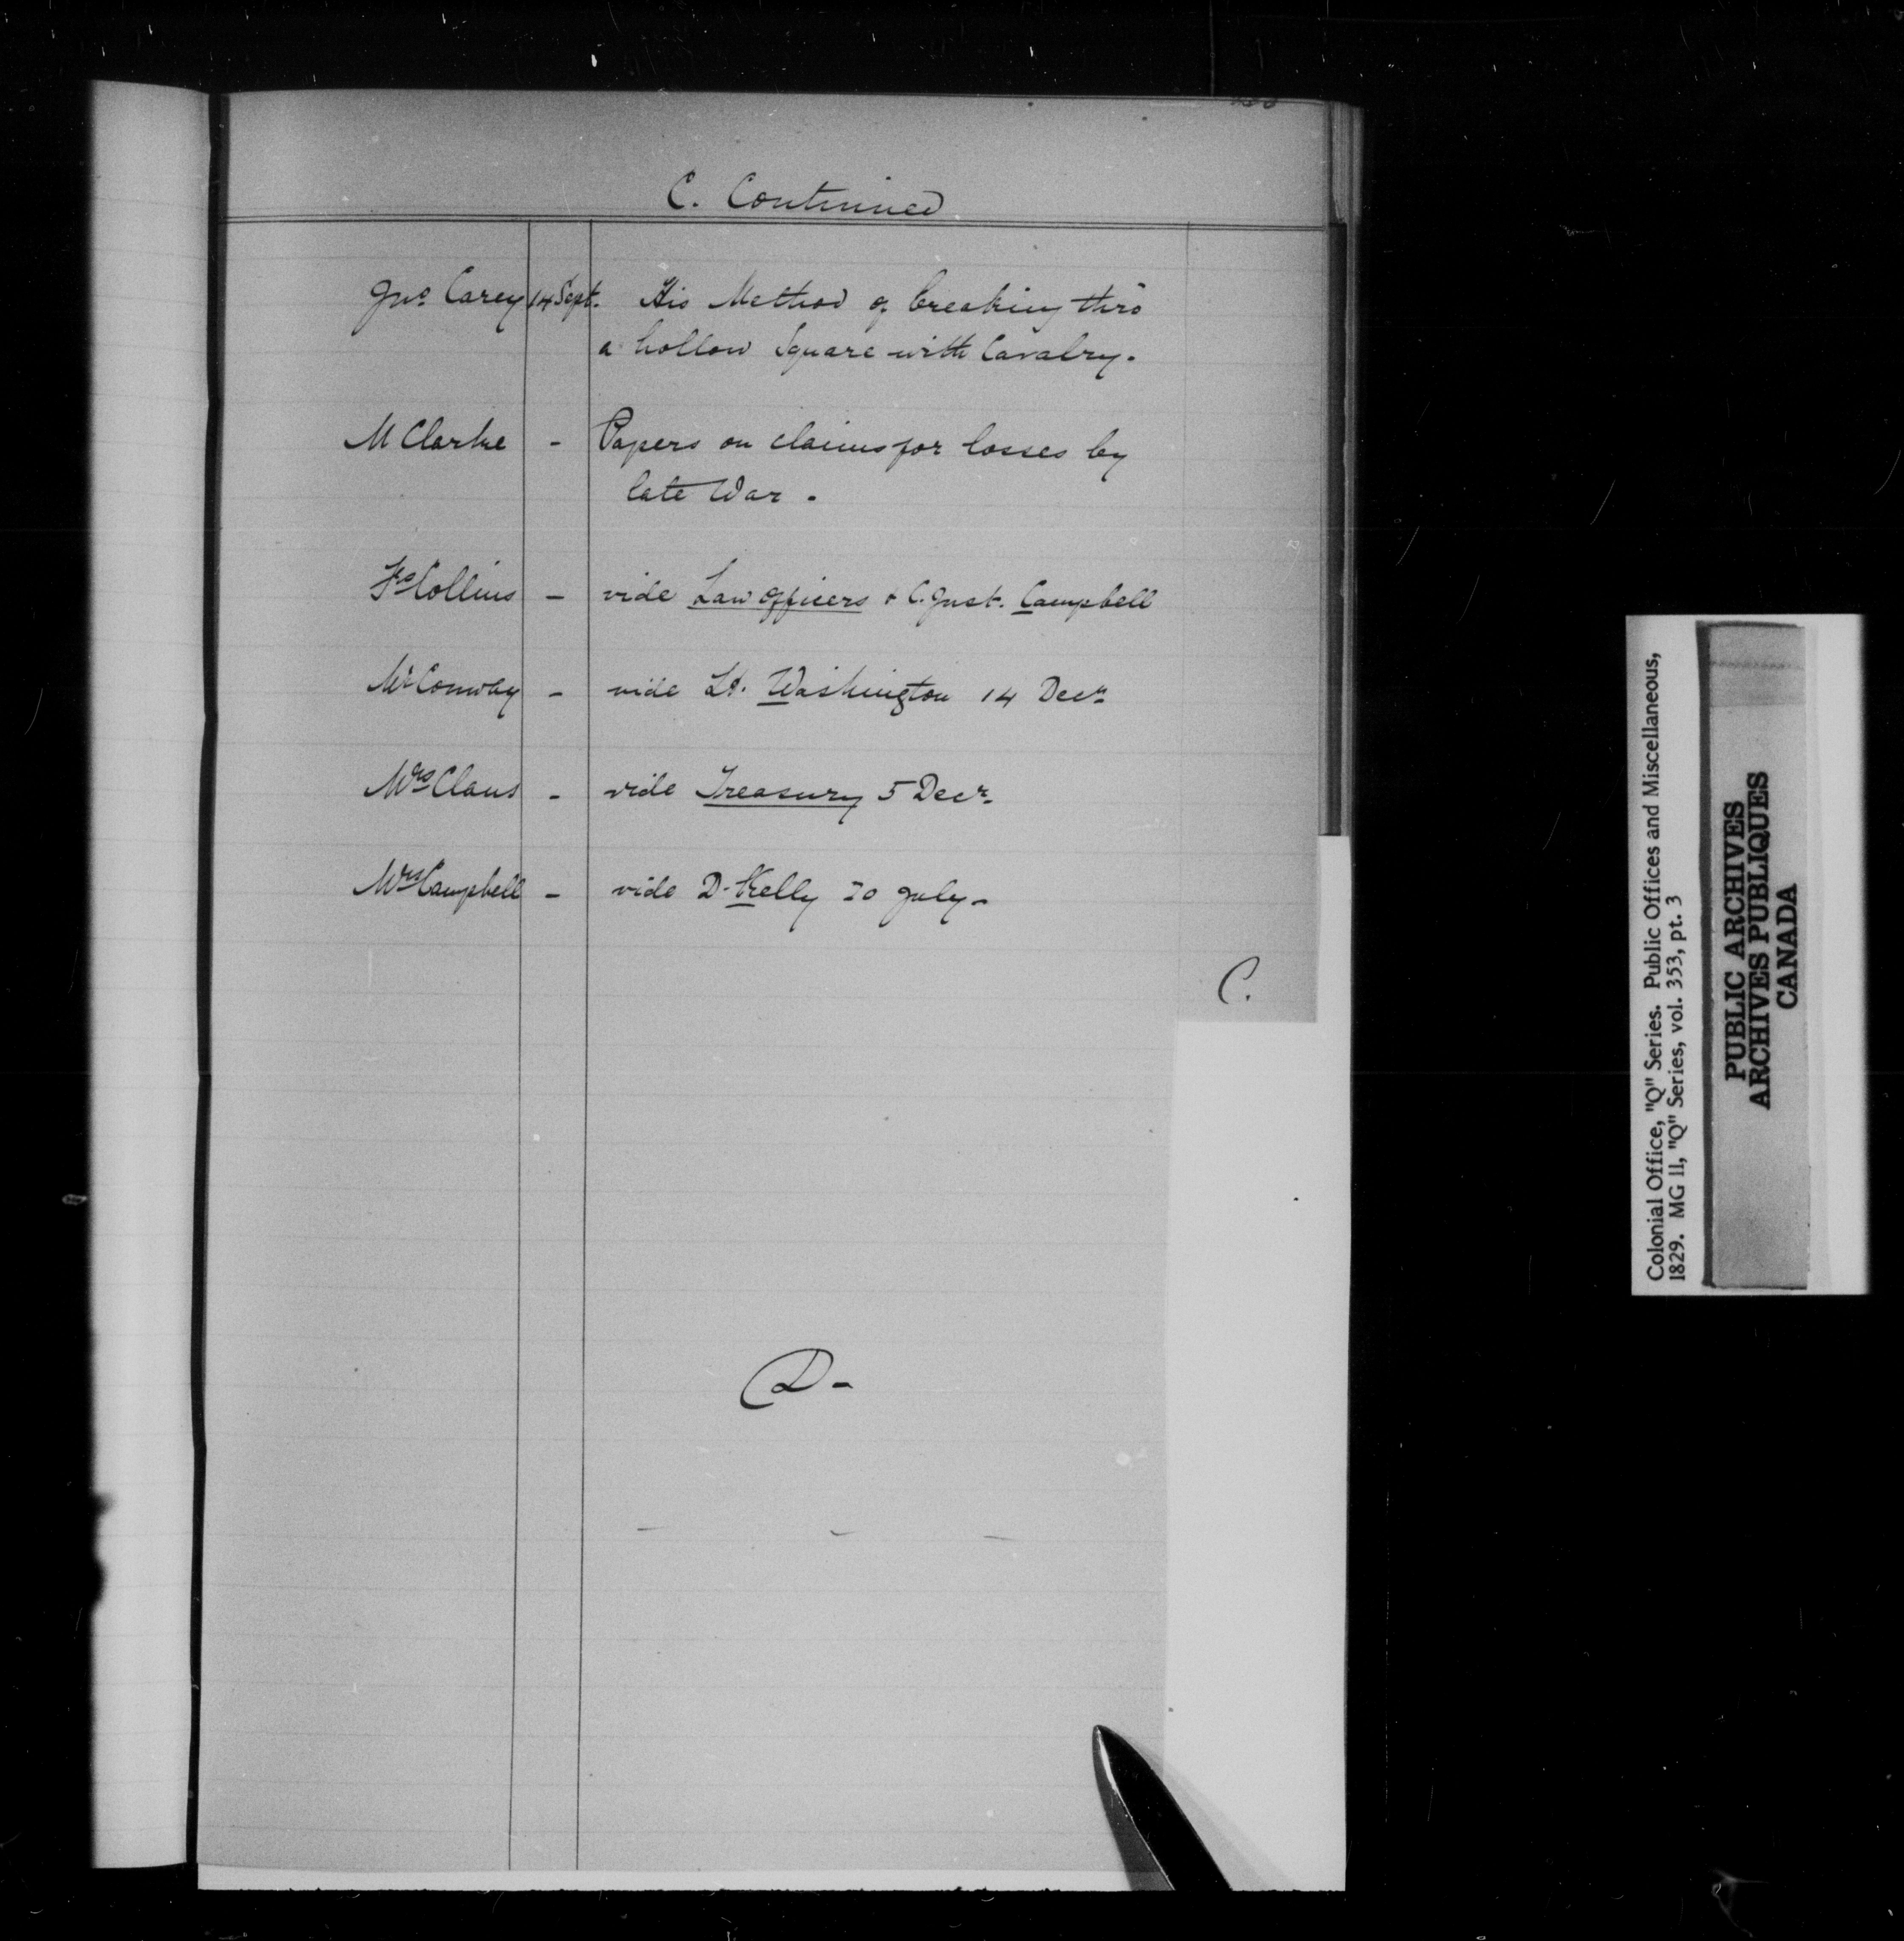 C. Continued
Jno Carey 14 Sept. His Method of breaking thro'
a hollow Square with Cavalry.
M Clarke - Papers on claims for losses by
late War.
Fs Collins - vide Law officers & C. Just. Campbell
Mr Conway - vide Ld. Washington 14 Decr
Mrs Claus - vide Treasury 5 Decr.
Mrs Campbell - vide D. Kelly 20 July -
C.
D -
Colonial Office, "Q" Series. Public Offices and Miscellaneous,
1829. MG 11, "Q" Series, vol. 353, pt. 3
PUBLIC ARCHIVES
ARCHIVES PUBLIQUES
CANADA